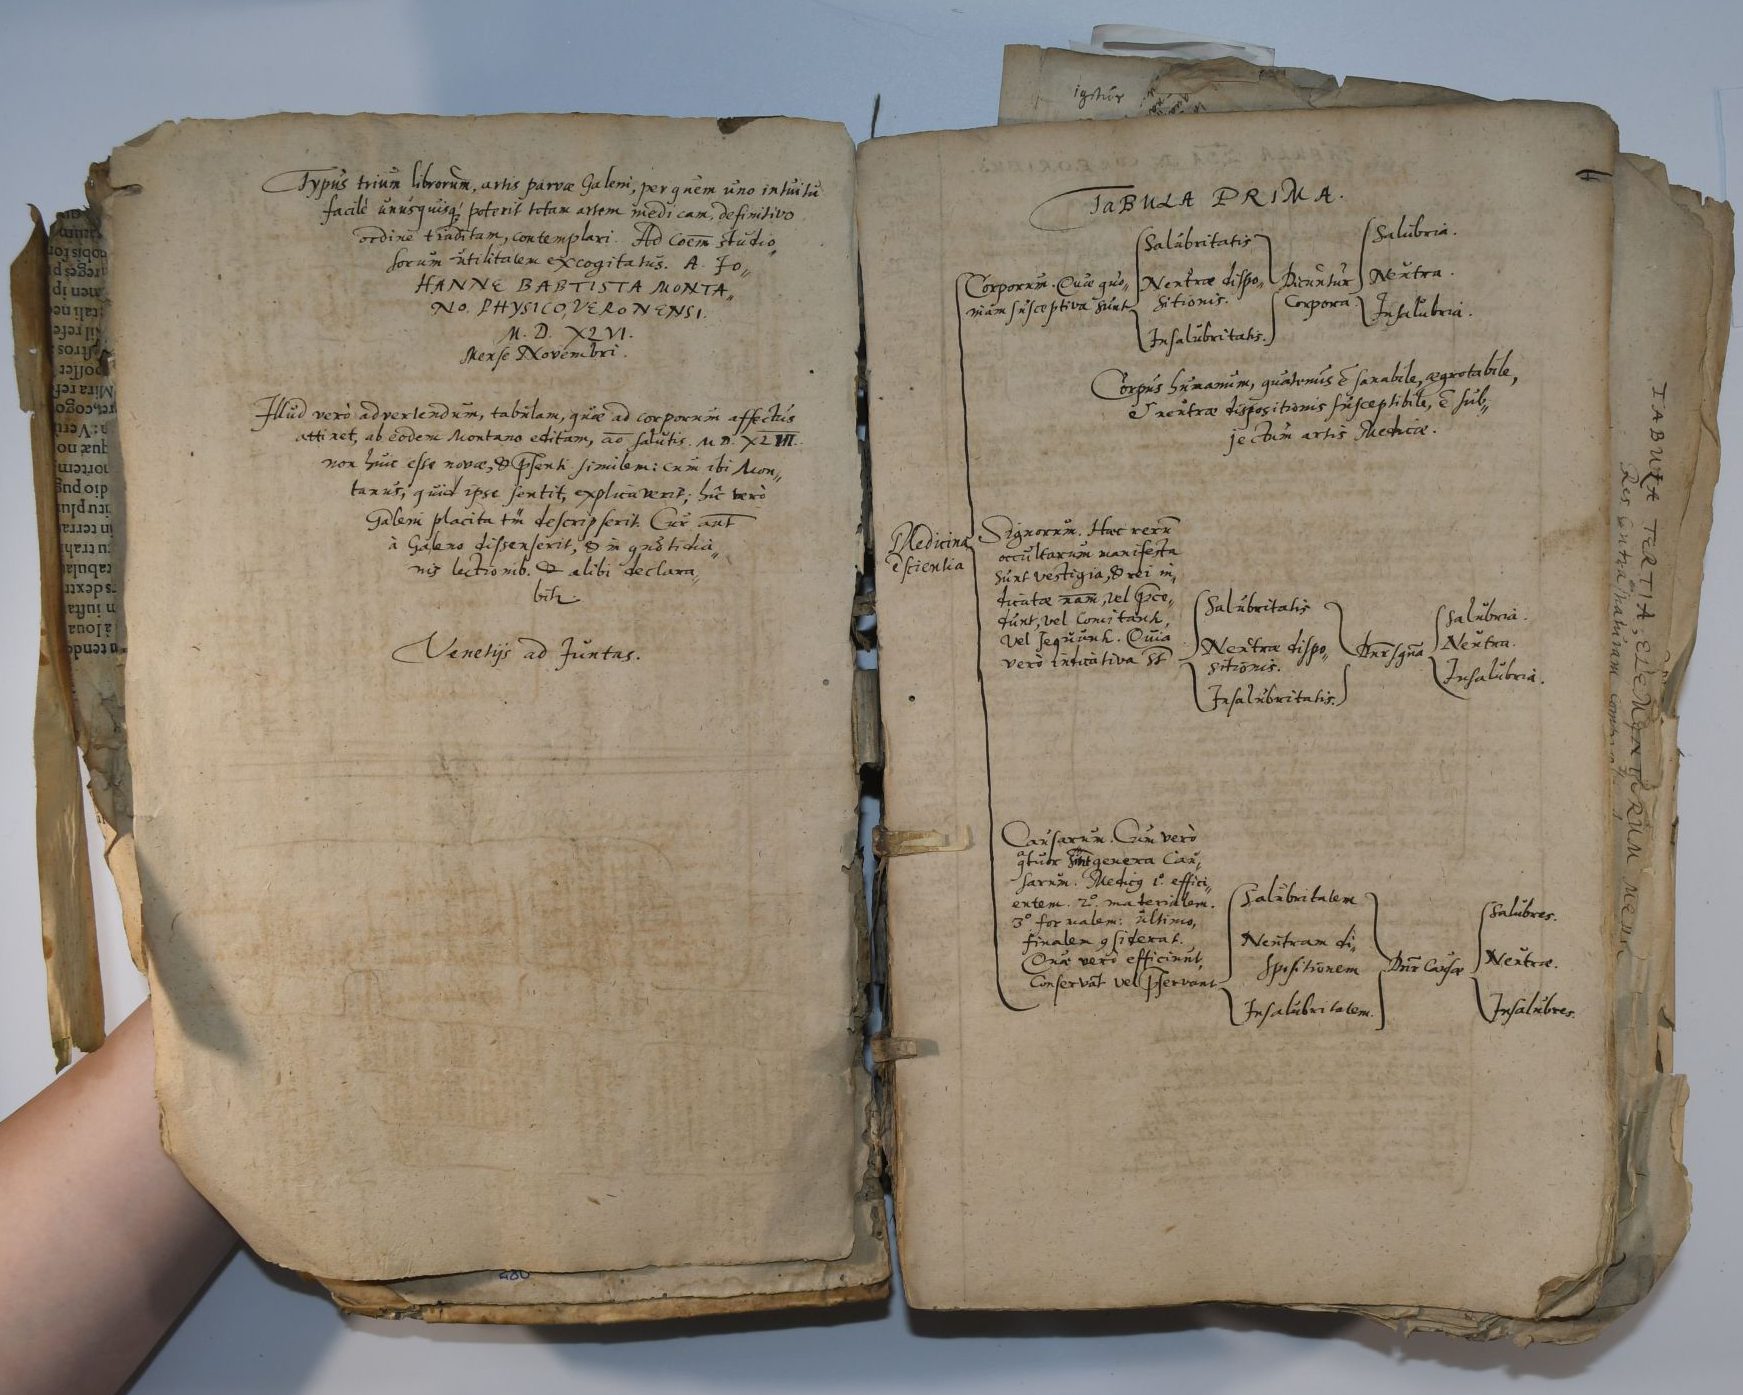 Typus trium librorum, artis parvæ Galeni, per quem uno intuitu
facilè unusquisq; poterit totam artem medicam, definitivo
ordine traditam, contemplari. Ad coem studio„
sorum utilitatem excogitatus. A. Jo„
HANNE BAPTISTA MONTA„
NO, PHYSICO, VERONENSI.
M. D. XLVI.
Mense Novembri.
Illud verò advertendum, tabulam, quæ ad corporum affectus
attinet, ab eodem Montano editam, ao salutis. M. D. XLIII.
non huic esse novæ, & pſenti similem: cum ibi Mon„
tanus, quid ipse sentit, explicaverit; hic verò
Galeni placita tm descripserit. Cur aut
à Galeno dissenserit, & in quotidia„
nis lectionib. & alibi declara„
bitr.
Venetijs ad Juntas.
TABULA PRIMA.
Medicina
ē scientia
Corporum. Quæ quo„
niam susceptiva sunt
Salubritatis
Neutræ dispo„
sitionis.
Insalubritatis.
Dicuntur
Corpora
Salubria.
Neutra.
Insalubria.
Corpus humanum, quatenus ē sanabile, ægrotabile,
& neutræ dispositionis susceptibile, ē sub„
jectum artis Medicæ.
Signorum. Hæc rerū
occultarum manifesta
sunt vestigia, & rei in„
dicatæ nam, vel pce„
dunt, vel comitant,
vel sequunt. Quia
verò indicativa st
Salubritatis
Neutræ dispo„
sitionis.
Insalubritatis.
Dnr signa
Salubria.
Neutra.
Insalubria.
Causarum. Cum verò
qtuor sint genera cau„
sarum. Medicq 1º. effici„
entem. 2º. materialem.
3º formalem. ultimo,
finalem gsiderat.
Quæ verò efficiunt,
Conservāt vel pservant
Salubritatem
Neutram di„
spositionem
Insalubritatem.
Dnr causæ
Salubres.
Neutræ.
Insalubres.
TABULA TERTIA, ELEMENTORUM
Res contra naturam
480